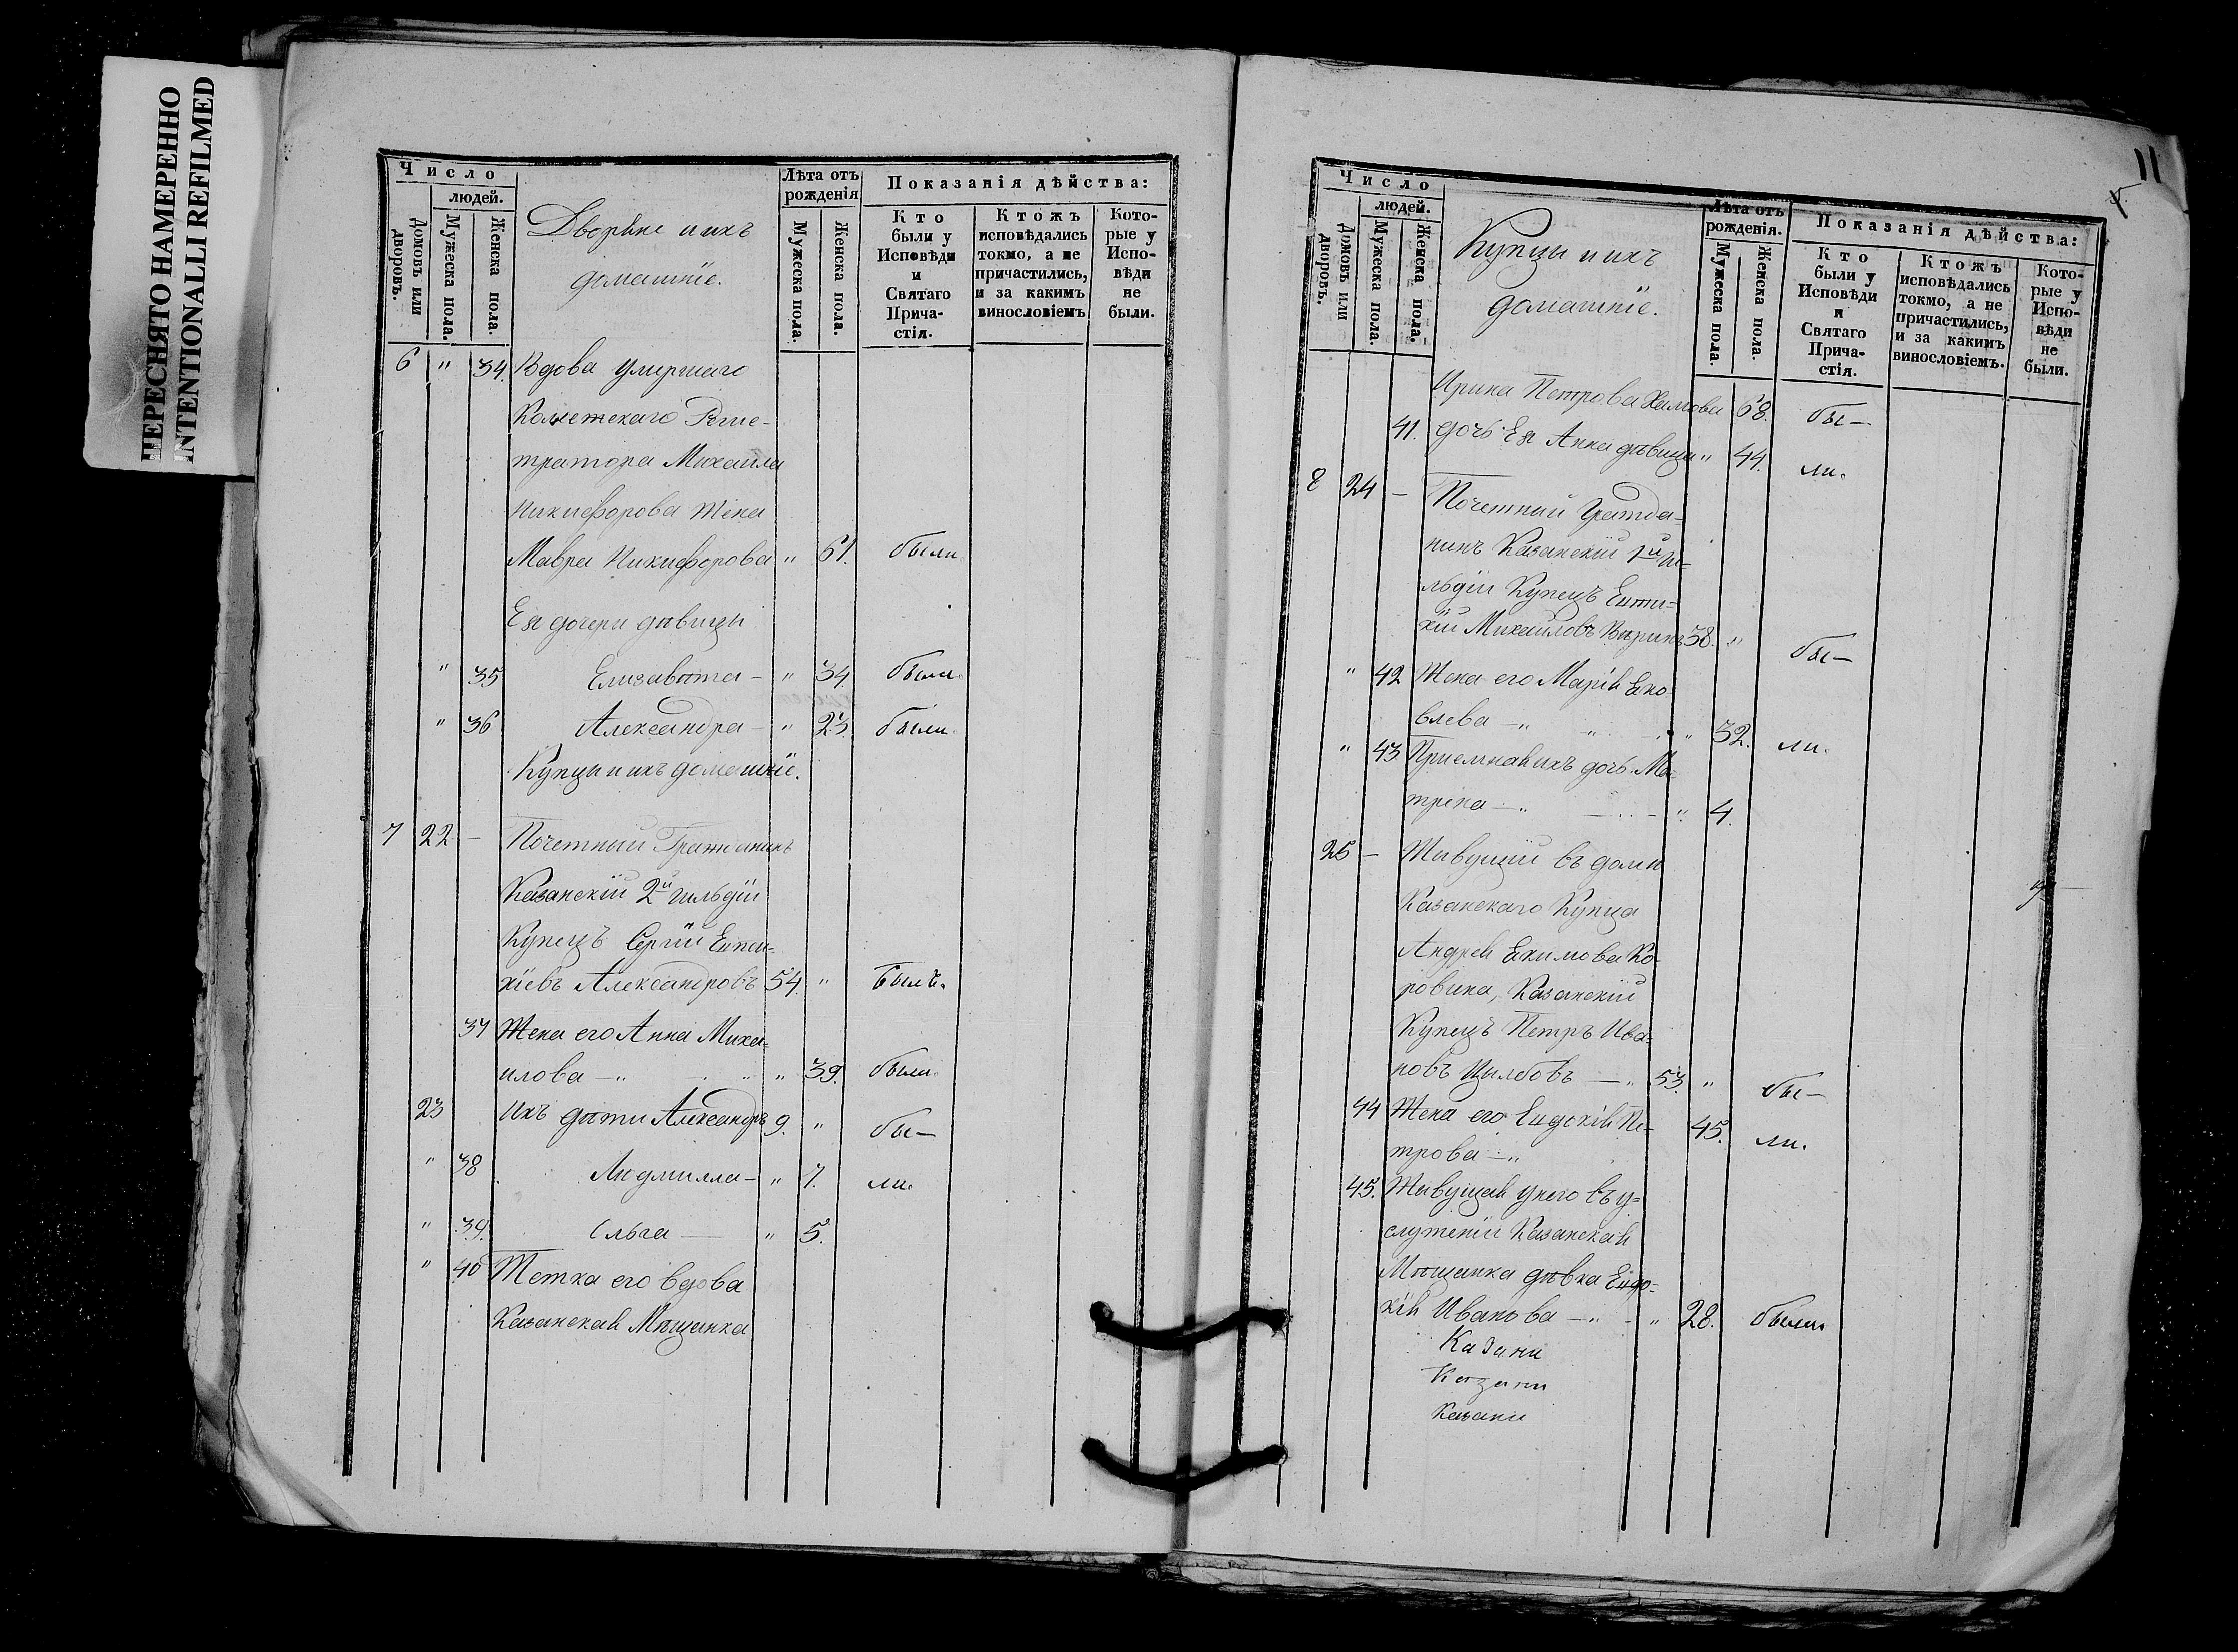 ПЕРЕСНЯТО НАМЕРЕННО
INTENTIONALLI REFILMED
Число
людей.
Домовъ или дворовъ.
Мужеска пола.
Женска пола.
Дворяне и ихъ
домашніе.
Лѣта отъ рожденія
Мужеска пола.
Женска пола.
Показанія дѣйства:
Кто были у Исповѣди и Святаго Прича-стія.
Ктожъ исповѣдались токмо, а не причастились, и за какимъ винословіемъ
Кото-рые у Испо-вѣди не были.
6 " 34. Вдова умершаго
Коллежскаго Реги-
тратора Михаила
Никифорова Жена
Мавра Никифорова " 61. были.
Ея дочери дѣвицы
" 35 Елизавѣта — " 34. были.
" 36 Александра — " 23. были.
Купцы и ихъ домашніе.
7 22 — Почетный Гражданинъ
Казанскій 2й гильдіи
Купецъ Сергій Евти-
хіевъ Александровъ 54. " Былъ.
37 Жена его Анна Миха=
илова — " " 39. были.
23 Ихъ дѣти Александръ 9. " бы—
" 38 Людмилла — " 7. ли.
" 39. Ольга — " 5.
" 40 Тетка его вдова
Казанская Мѣщанка
11
Число
людей.
Домовъ или дворовъ.
Мужеска пола.
Женска пола.
Купцы и ихъ
домашніе.
Лѣта отъ рожденія.
Мужеска пола.
Женска пола.
Показанія дѣйства:
Кто были у Исповѣди и Святаго Прича-стія.
Ктожъ исповѣдались токмо, а не причастились, и за какимъ винословіемъ.
Кото-рые у Испо-вѣди не были.
Ирина Петрова 68. бы—
41. дочь Ея Анна дѣвица " 44. ли.
8 24 — Почетный Гражда=
нинъ Казанскій 1й ги=
льдіи Купецъ Евти=
хій Михайловъ 38. " бы—
" 42 Жена его Марія Яко
влева — " " 32. ли.
" 43 Пріемная ихъ дочь Ма-
трена — " " 4.
25 — Живущій въ домѣ
Казанскаго Купца
Андрея Екимова Ко-
ровина, Казанскій
Купецъ Петръ Ива=
новъ — " 53. " бы—
44 Жена его Евдокія Пе-
трова — " 45. ли.
45. Живущая у него въ у=
служеніи Казанская
Мѣщанка дѣвка Евдо=
кія Иванова — " " 28. были
Казани
Казани
Казани